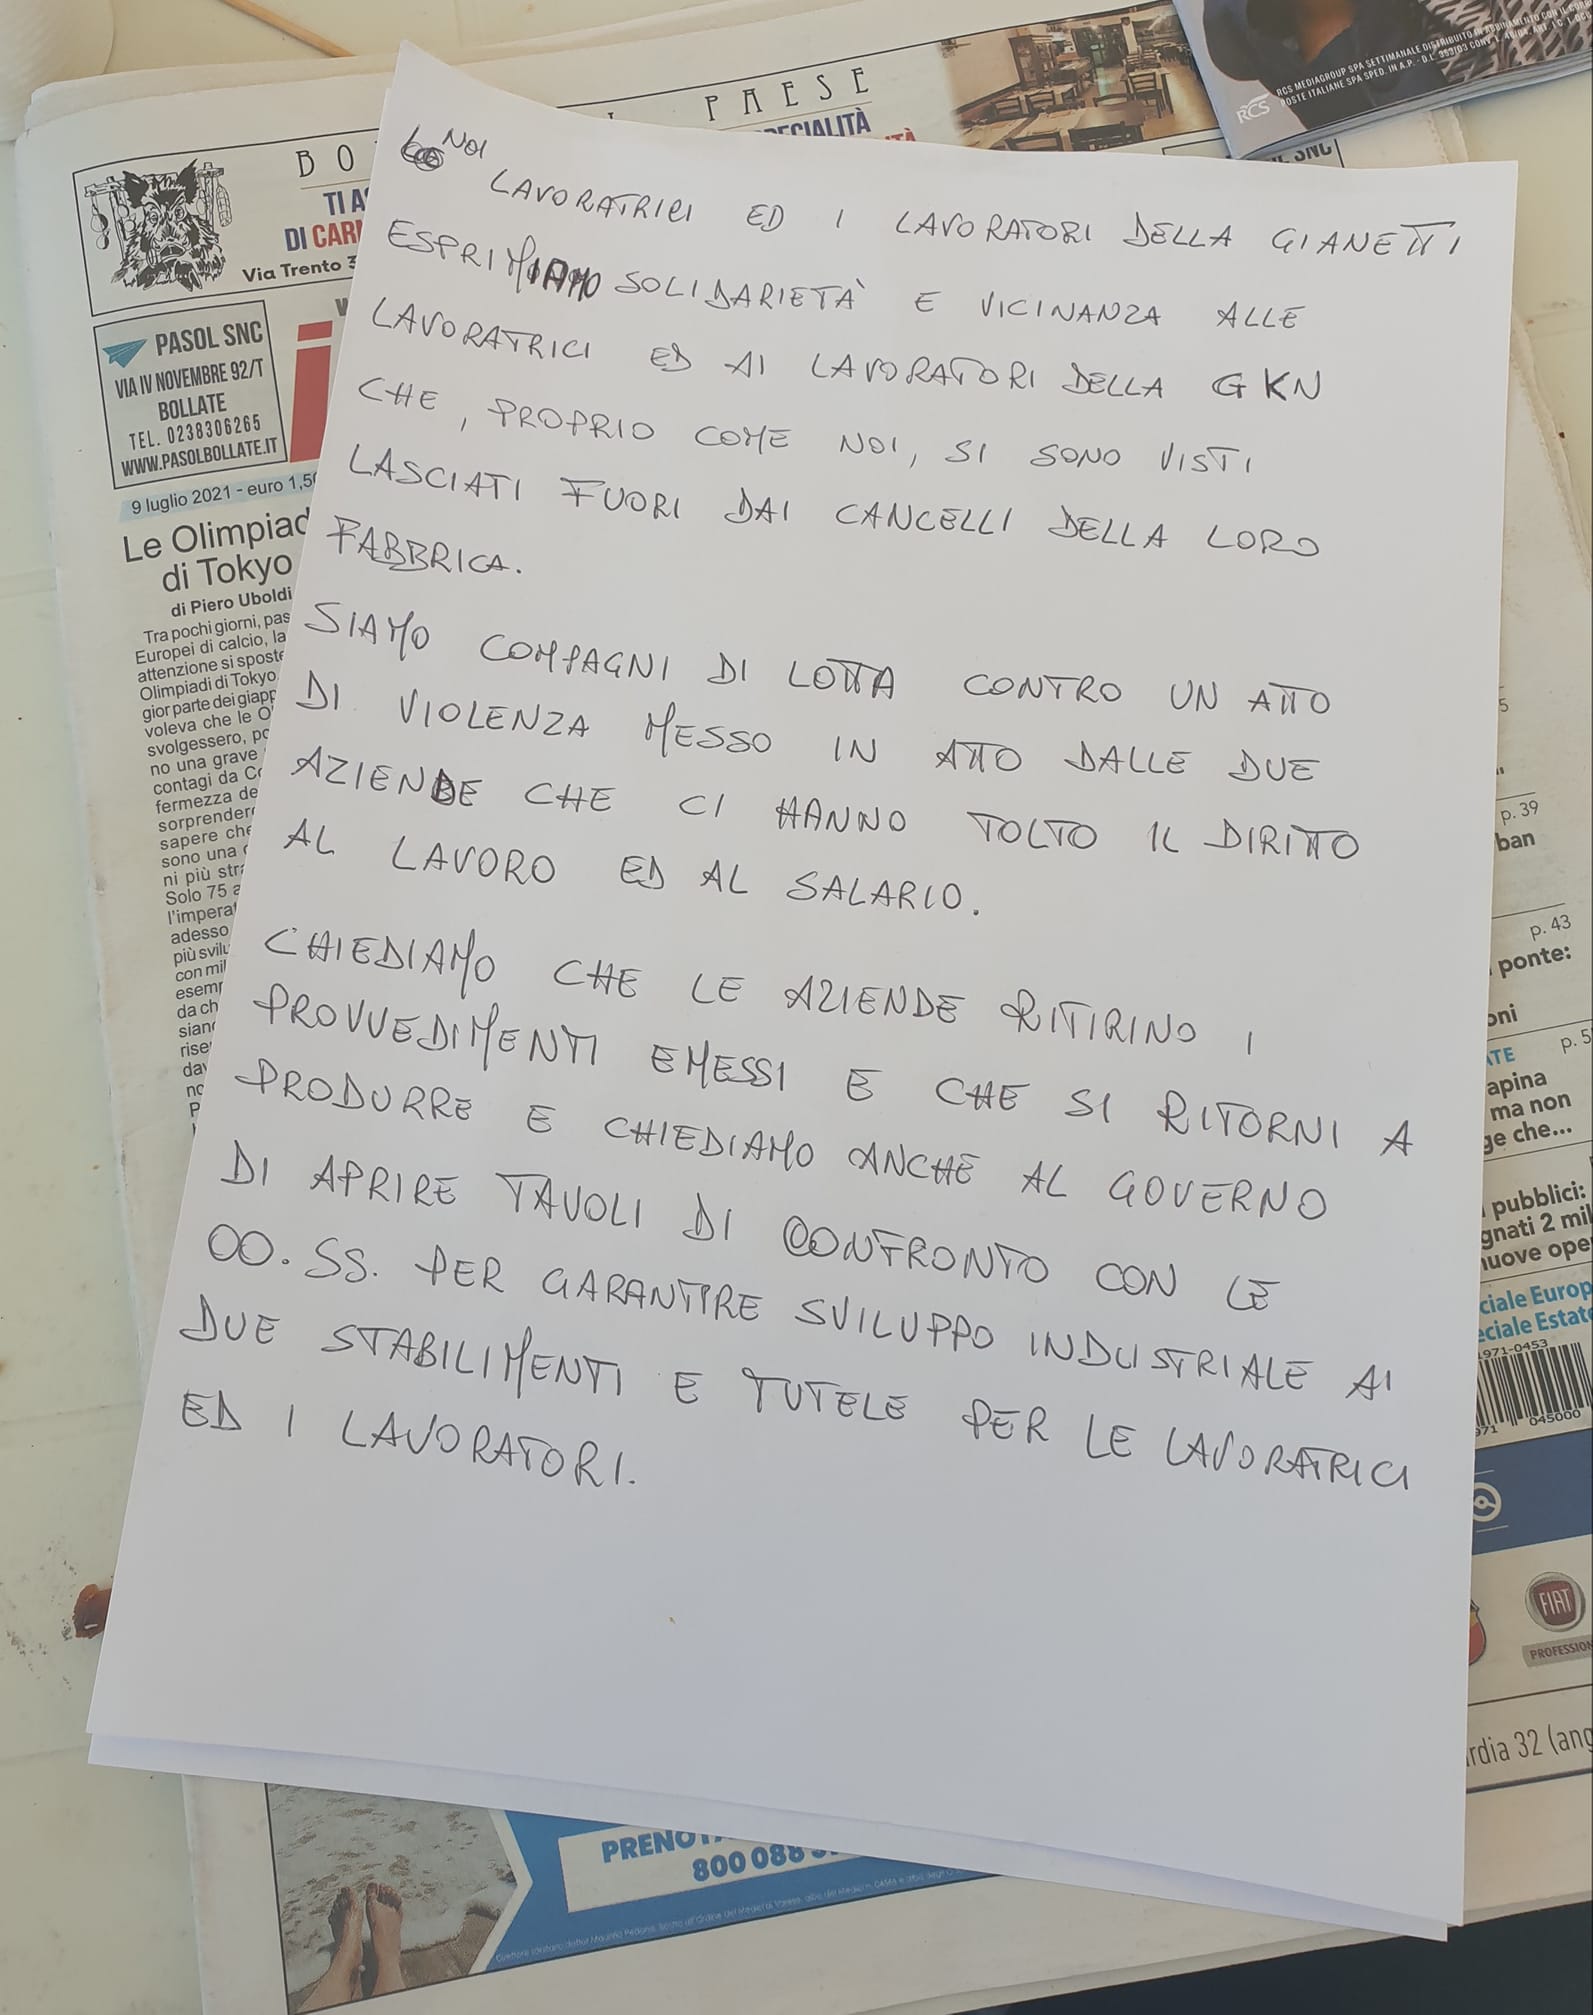 PAESE
BO
TI A
DI CARN
Via Trento 3
RCS MEDIAGROUP SPA SETTIMANALE DISTRIBUITO IN ABBINAMENTO CON IL
POSTE ITALIANE SPA SPED. IN A.P. - D.L. 353/03 CONV. L. 46/04, ART. 1 C. 1
RCS
SNC
NOI
LAVORATRICI ED I LAVORATORI DELLA GIANETTI
ESPRIMIAMO SOLIDARIETÀ E VICINANZA ALLE
LAVORATRICI ED AI LAVORATORI DELLA GKN
CHE, PROPRIO COME NOI, SI SONO VISTI
LASCIATI FUORI DAI CANCELLI DELLA LORO
FABBRICA.
SIAMO COMPAGNI DI LOTTA CONTRO UN ATTO
DI VIOLENZA MESSO IN ATTO DALLE DUE
AZIENDE CHE CI HANNO TOLTO IL DIRITTO
AL LAVORO ED AL SALARIO.
CHIEDIAMO CHE LE AZIENDE RITIRINO I
PROVVEDIMENTI EMESSI E CHE SI RITORNI A
PRODURRE E CHIEDIAMO ANCHE AL GOVERNO
DI APRIRE TAVOLI DI CONFRONTO CON LE
OO.SS. PER GARANTIRE SVILUPPO INDUSTRIALE AI
DUE STABILIMENTI E TUTELE PER LE LAVORATRICI
ED I LAVORATORI.
PASOL SNC
VIA IV NOVEMBRE 92/T
BOLLATE
TEL. 0238306265
WWW.PASOLBOLLATE.IT
9 luglio 2021 - euro 1,50
Le Olimpiad
di Tokyo
di Piero Uboldi
Tra pochi giorni, pas
Europei di calcio, la
attenzione si sposte
Olimpiadi di Tokyo
gior parte dei giapp
voleva che le O
svolgessero, po
no una grave
contagi da Co
fermezza de
sorprender
sapere che
sono una
ni più stra
Solo 75 a
l'imperat
adesso
più svilu
con mil
esemp
da ch
siano
rise
dav
no
p. 39
ban
p. 43
ponte:
oni
p. 5
apina
ma non
ge che...
pubblici:
gnati 2 mil
nuove ope
ciale Europ
eciale Estate
971-0453
045000
FIAT
PROFESSION
rdia 32 (ang
PRENOT
800 088